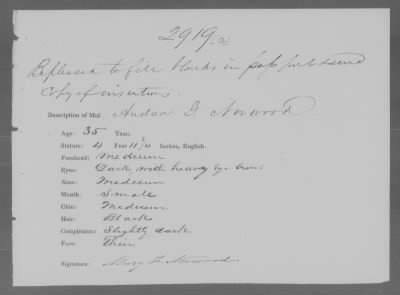 2919.
to fill blanks in send
Copy of insertions.
Description of Me Andrew G. Norwood.
Age: 35 Years
Stature: 4 Feet 11 Inches, English.
Forehead: Medium
Eyes: Dark with heavy eye brow
Nose: Medium
Mouth: Small
Chin: Medium
Hair: Black
Complexion: Slightly dark
Face: Thin
Signature: Mary L. Norwood